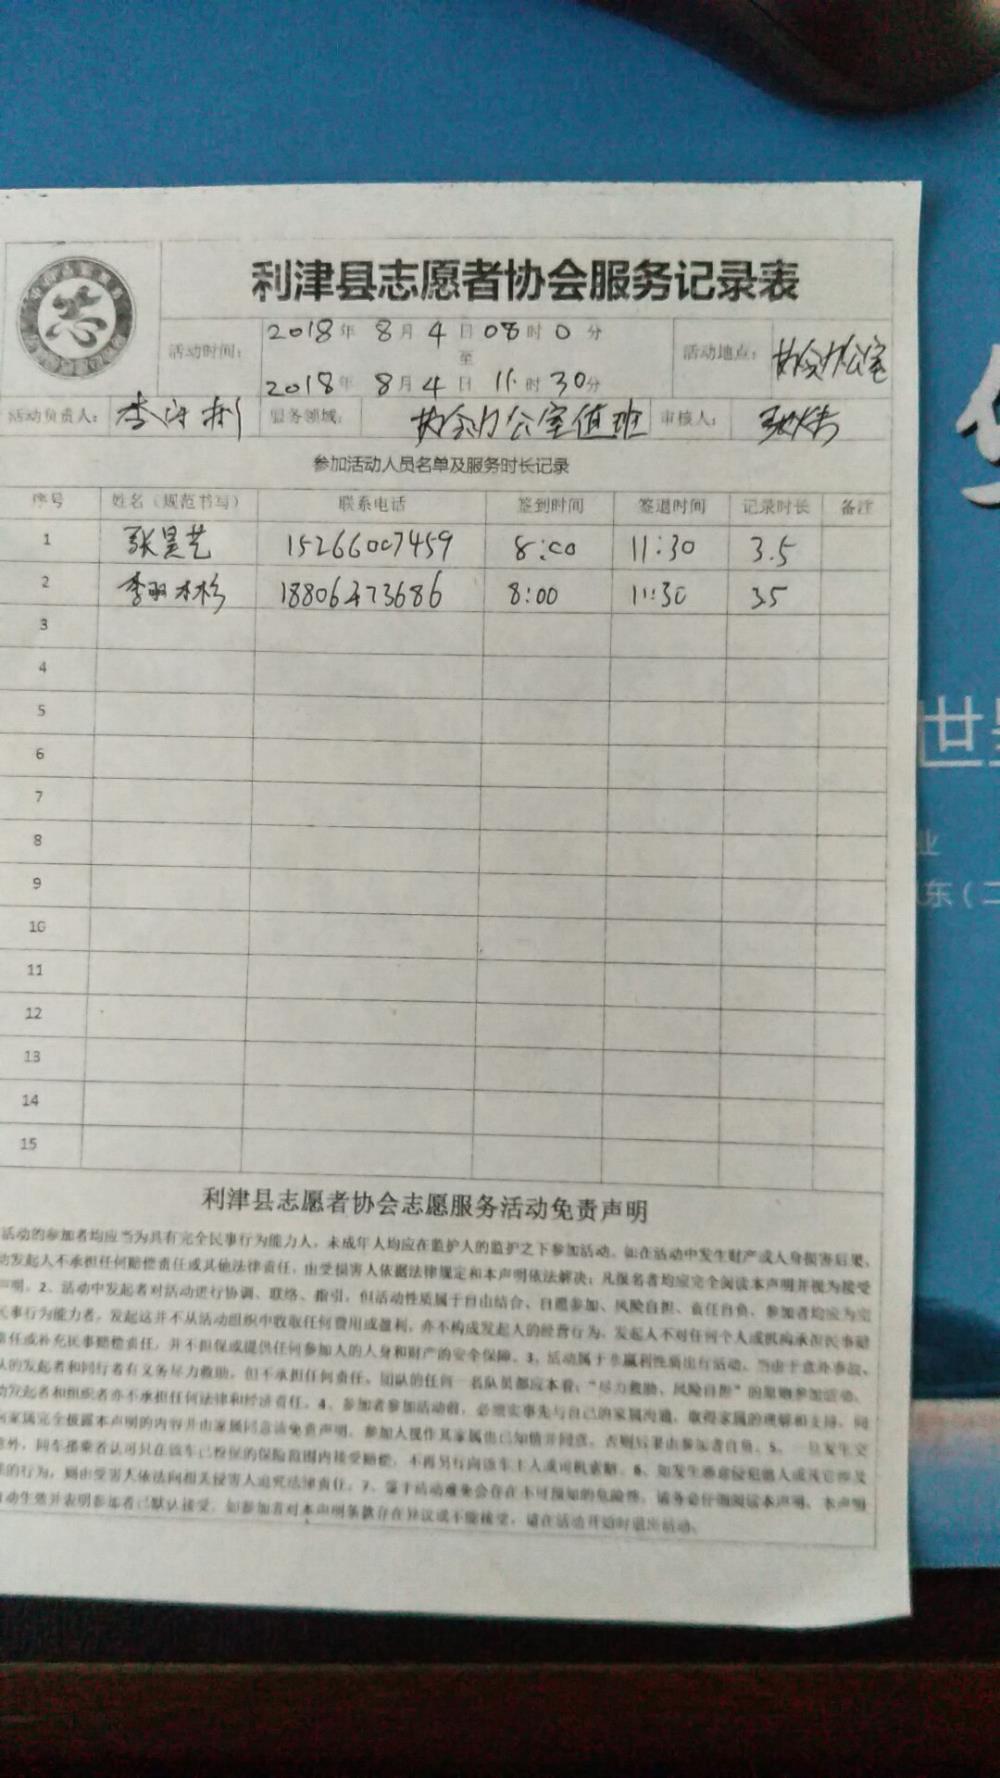 利津县志愿者协会服务记录表
活动时间: 2018年 8月 4日 08时 0分
至
2018年 8月 4日 11时 30分
活动地点: 协会办公室
活动负责人:
服务领域: 协会办公室值班
审核人:
参加活动人员名单及服务时长记录
序号 姓名(规范书写) 联系电话 签到时间 签退时间 记录时长 备注
1 张昊艺 15266007459 8:00 11:30 3.5
2 李羽彬杉 18806473686 8:00 11:30 35
3
4
5
6
7
8
9
10
11
12
13
14
15
利津县志愿者协会志愿服务活动免责声明
活动的参加者均应当为具有完全民事行为能力人,未成年人均应在监护人的监护之下参加活动。如在活动中发生财产或人身损害后果,
动发起人不承担任何赔偿责任或其他法律责任,由受损害人依据法律规定和本声明依法解决;凡报名者均应完全阅读本声明并视为接受
声明。2、活动中发起者对活动进行协调、联络、指引,但活动性质属于自由结合、自愿参加、风险自担、责任自负,参加者均应为完
民事行为能力者,发起这并不从活动组织中收取任何费用或盈利,亦不构成发起人的经营行为,发起人不对任何个人或机构承担民事赔
责任或补充民事赔偿责任,并不担保或提供任何参加人的人身和财产的安全保障。3、活动属于非赢利性质出行活动,当由于意外事故、
队的发起者和同行者有义务尽力救助,但不承担任何责任。团队的任何一名队员都应本着:“尽力救助、风险自担”的原则参加活动。
动发起者和组织者亦不承担任何法律和经济责任。4、参加者参加活动前,必须实事先与自己的家属沟通,取得家属的理解和支持,同
家属完全披露本声明的内容并由家属同意该免责声明,参加人视作其家属也已知情并同意,否则后果由参加者自负。5、一旦发生交
意外,同车搭乘者认可只在该车已投保的保险范围内接受赔偿,不再另行向该车主人或司机索赔。6、如发生恶意侵犯他人
的行为,则由受害人依法向相关侵害人追究法律责任。7、鉴于活动难免会存在不可预知的危险性,请务必仔细阅读本声明,本声明
自动生效并表明参加者已默认接受。如参加者对本声明条款存在异议或不能接受,请在活动开始时退出活动。
世
业
东(二